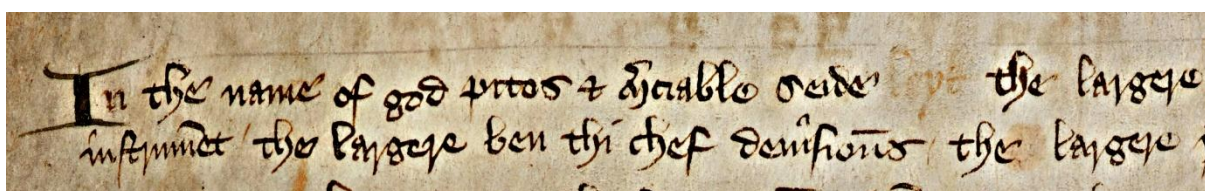 In the name of god pitos & m̃ciable seide the largere
instrumēt the largere ben thi chef deuisioūs the largere